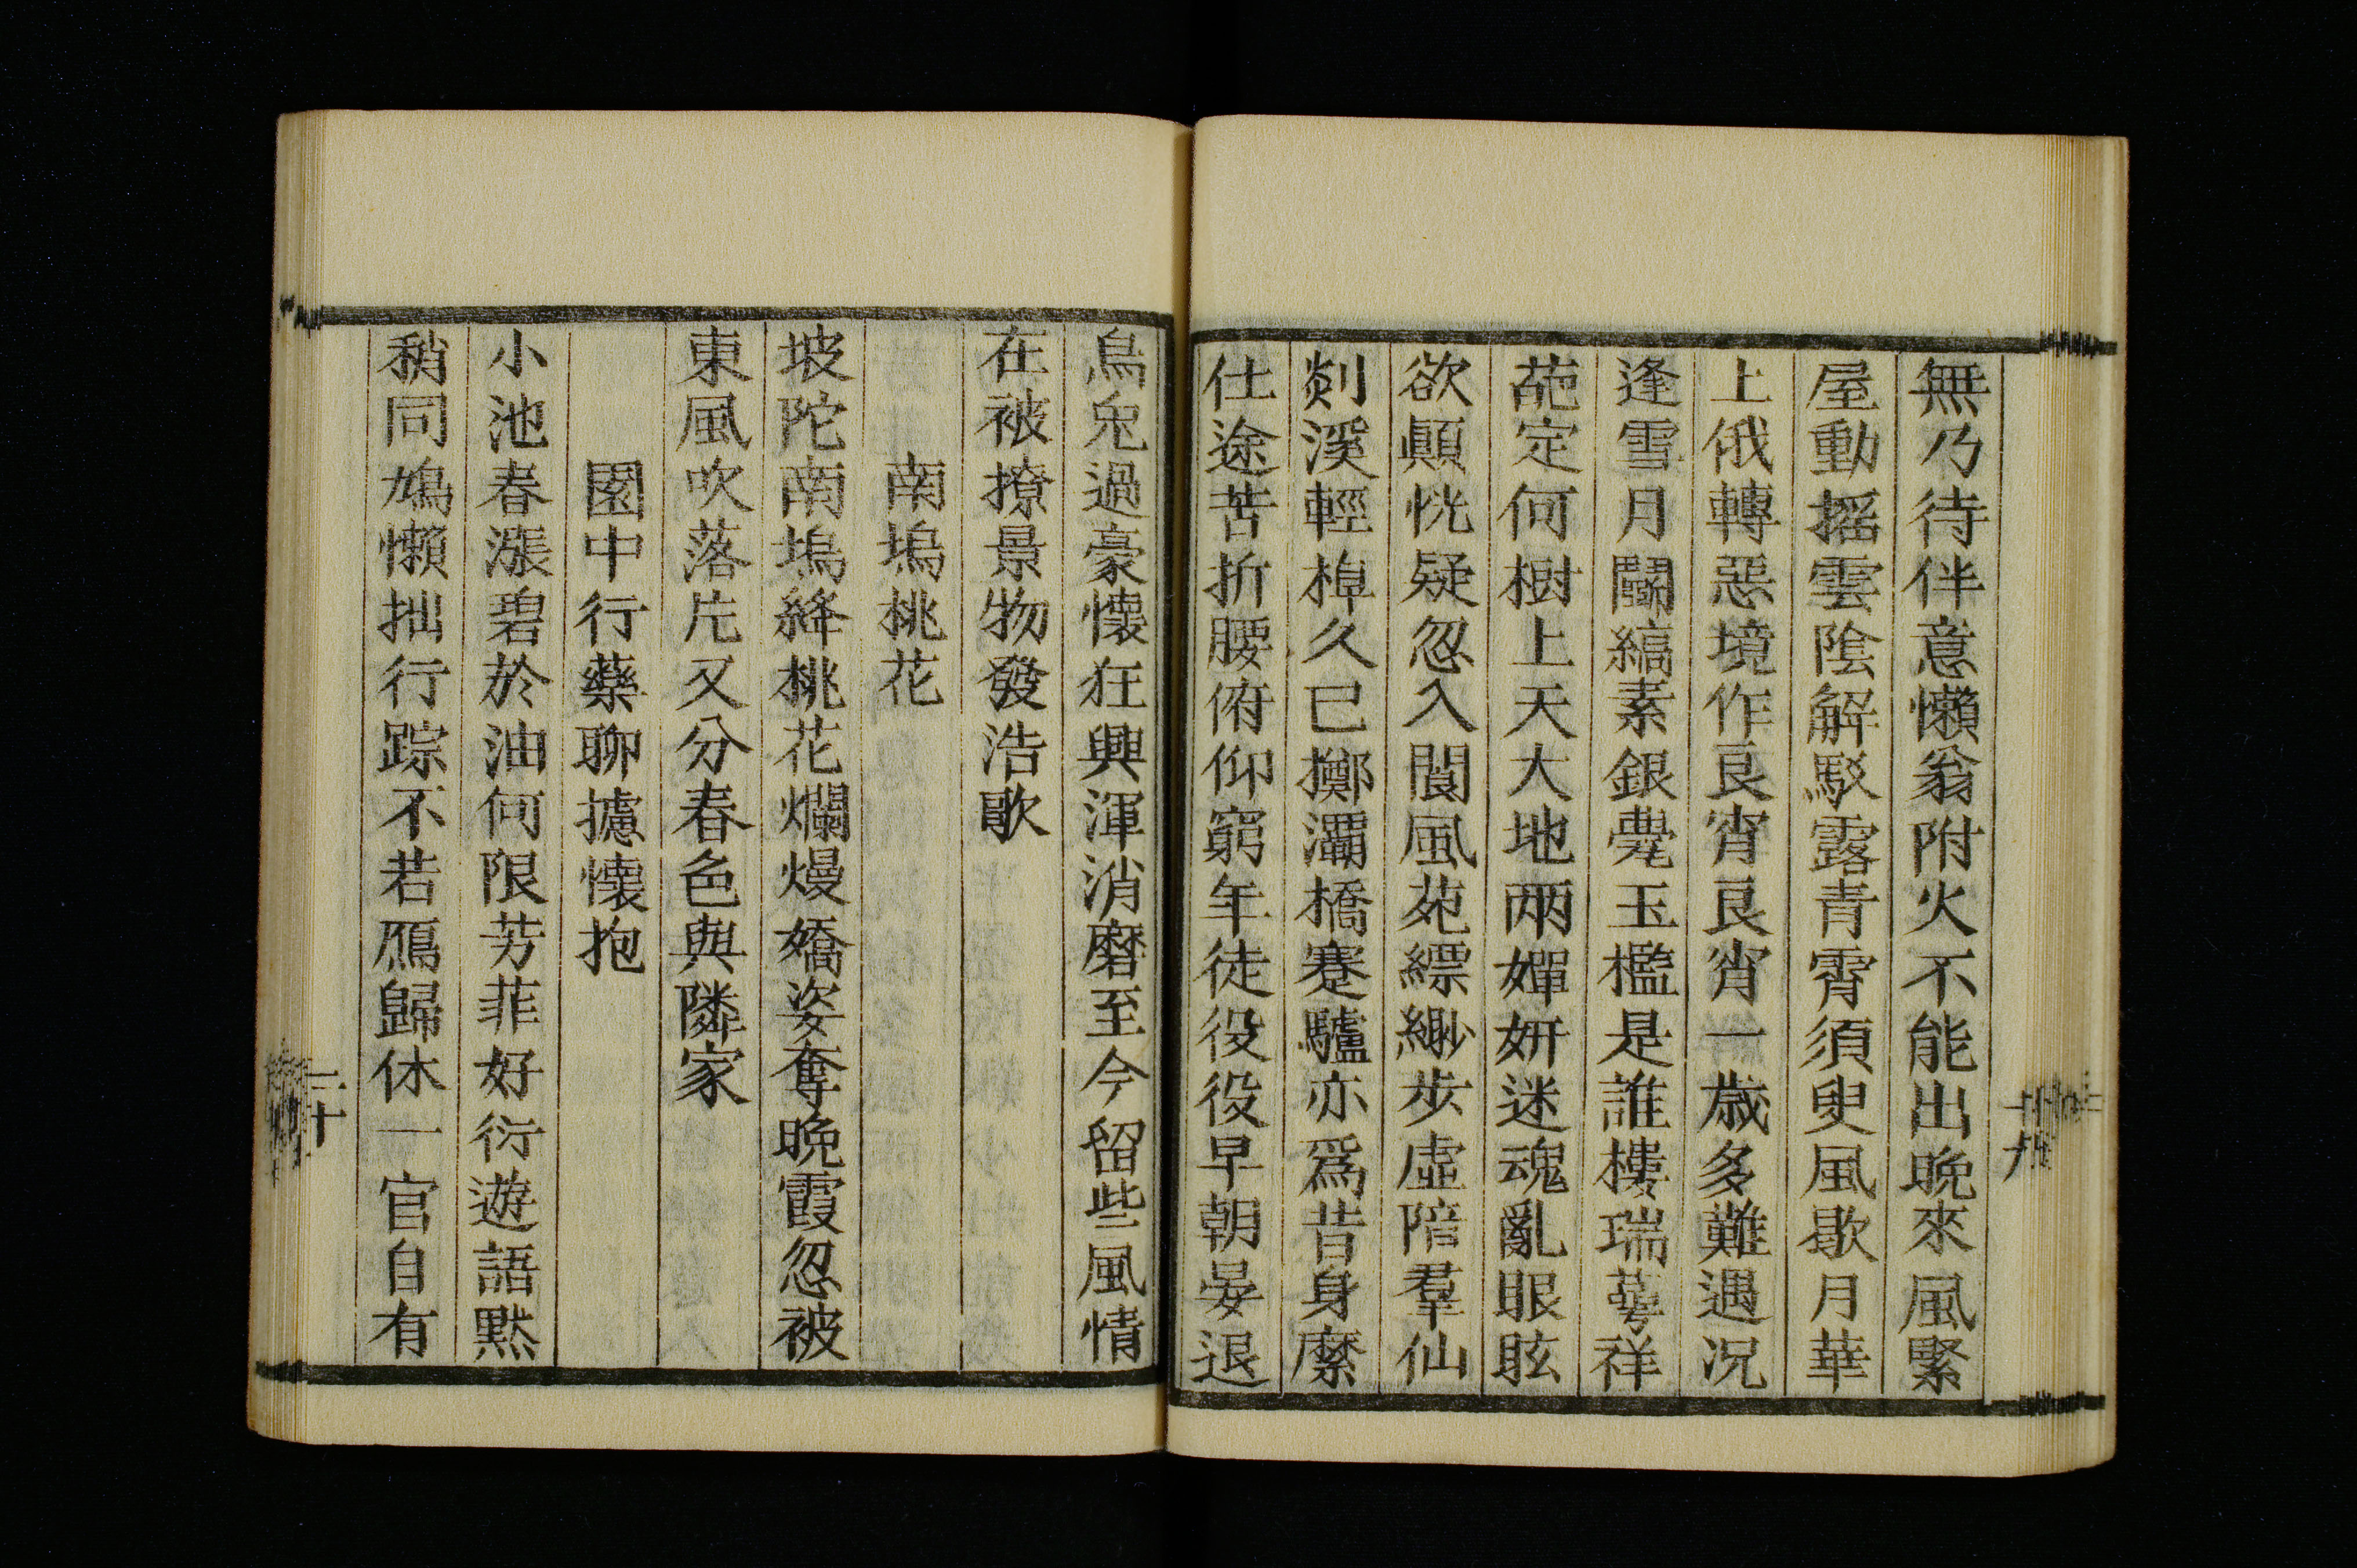 無乃待伴意懶翁附火不能出晚來風緊
屋動搖雲陰解駁露青霄須臾風歇月華
上俄轉惡境作良宵良宵一歲多難遇况
逢雪月鬭縞素銀甍玉檻是誰樓瑞萼祥
葩定何樹上天大地兩嬋妍迷魂亂眼眩
欲顚恍疑忽入閬風苑縹緲步虛陪羣仙
剡溪輕棹久已擲灞橋蹇驢亦爲昔身縻
仕途苦折腰俯仰窮年徒役役早朝晏退
十九
烏兔過豪懷狂興渾消磨至今留些風情
在被撩景物發浩歌
南塢桃花
坡陀南塢絳桃花爛熳嬌姿奪晚霞忽被
東風吹落片又分春色與隣家
園中行藥聊攄懷抱
小池春漲碧於油何限芳菲好衍遊語默
稍同鳩懶拙行踪不若鴈歸休一官自有
二十